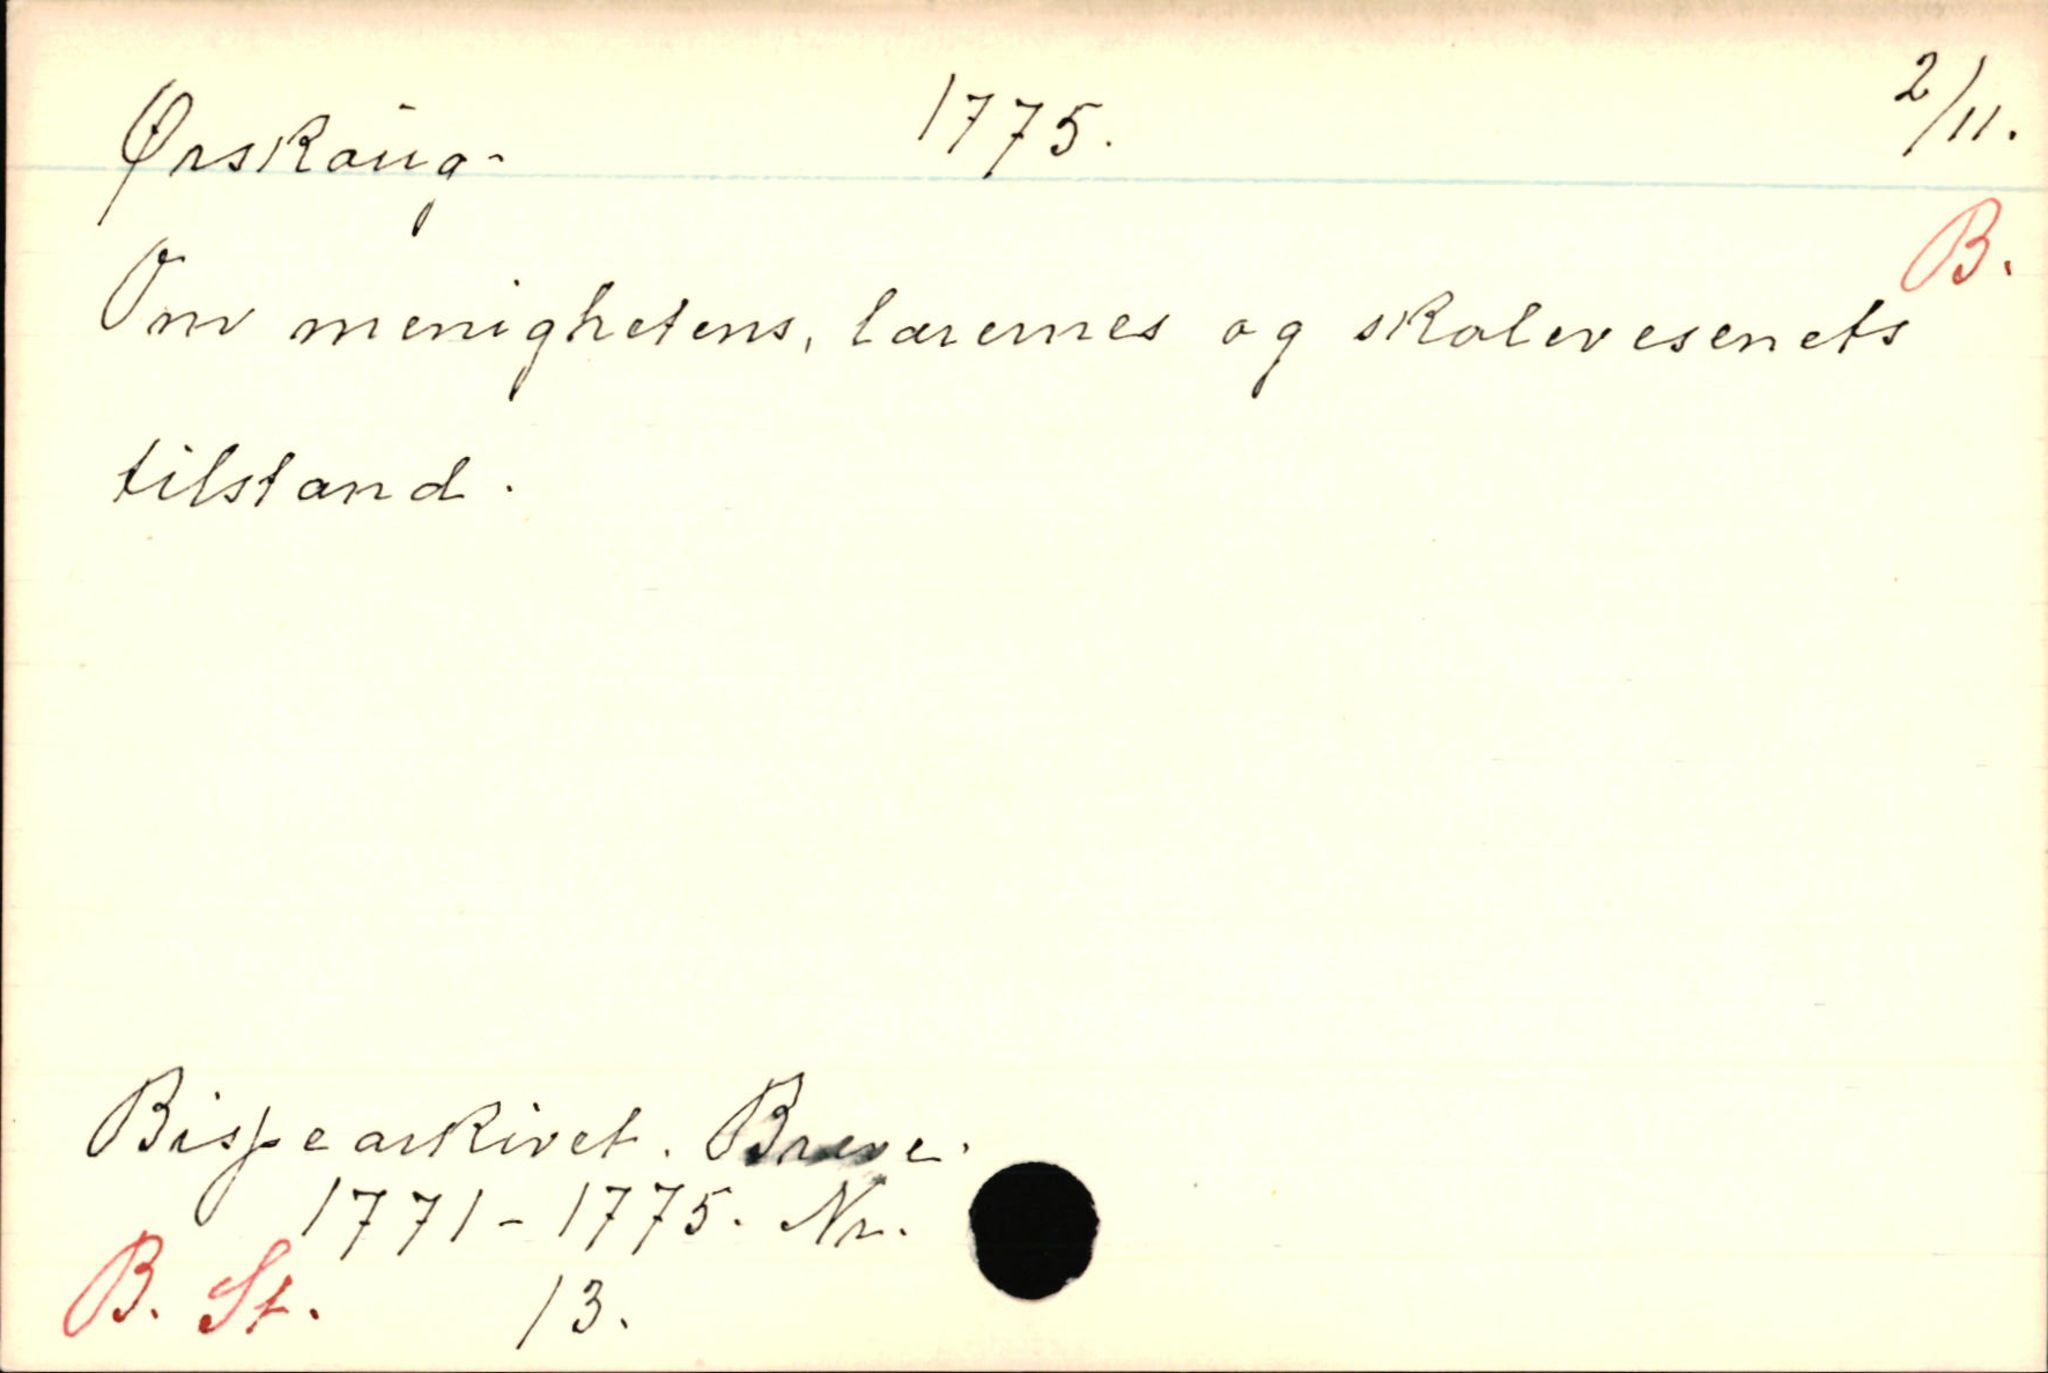 Ørskaug- 1775. 2/11.
B.
Om menighetens, lærernes og skolevesenets
tilstand.
Bispearkivet. Breve.
1771-1775. Nr.
B. St. 13.